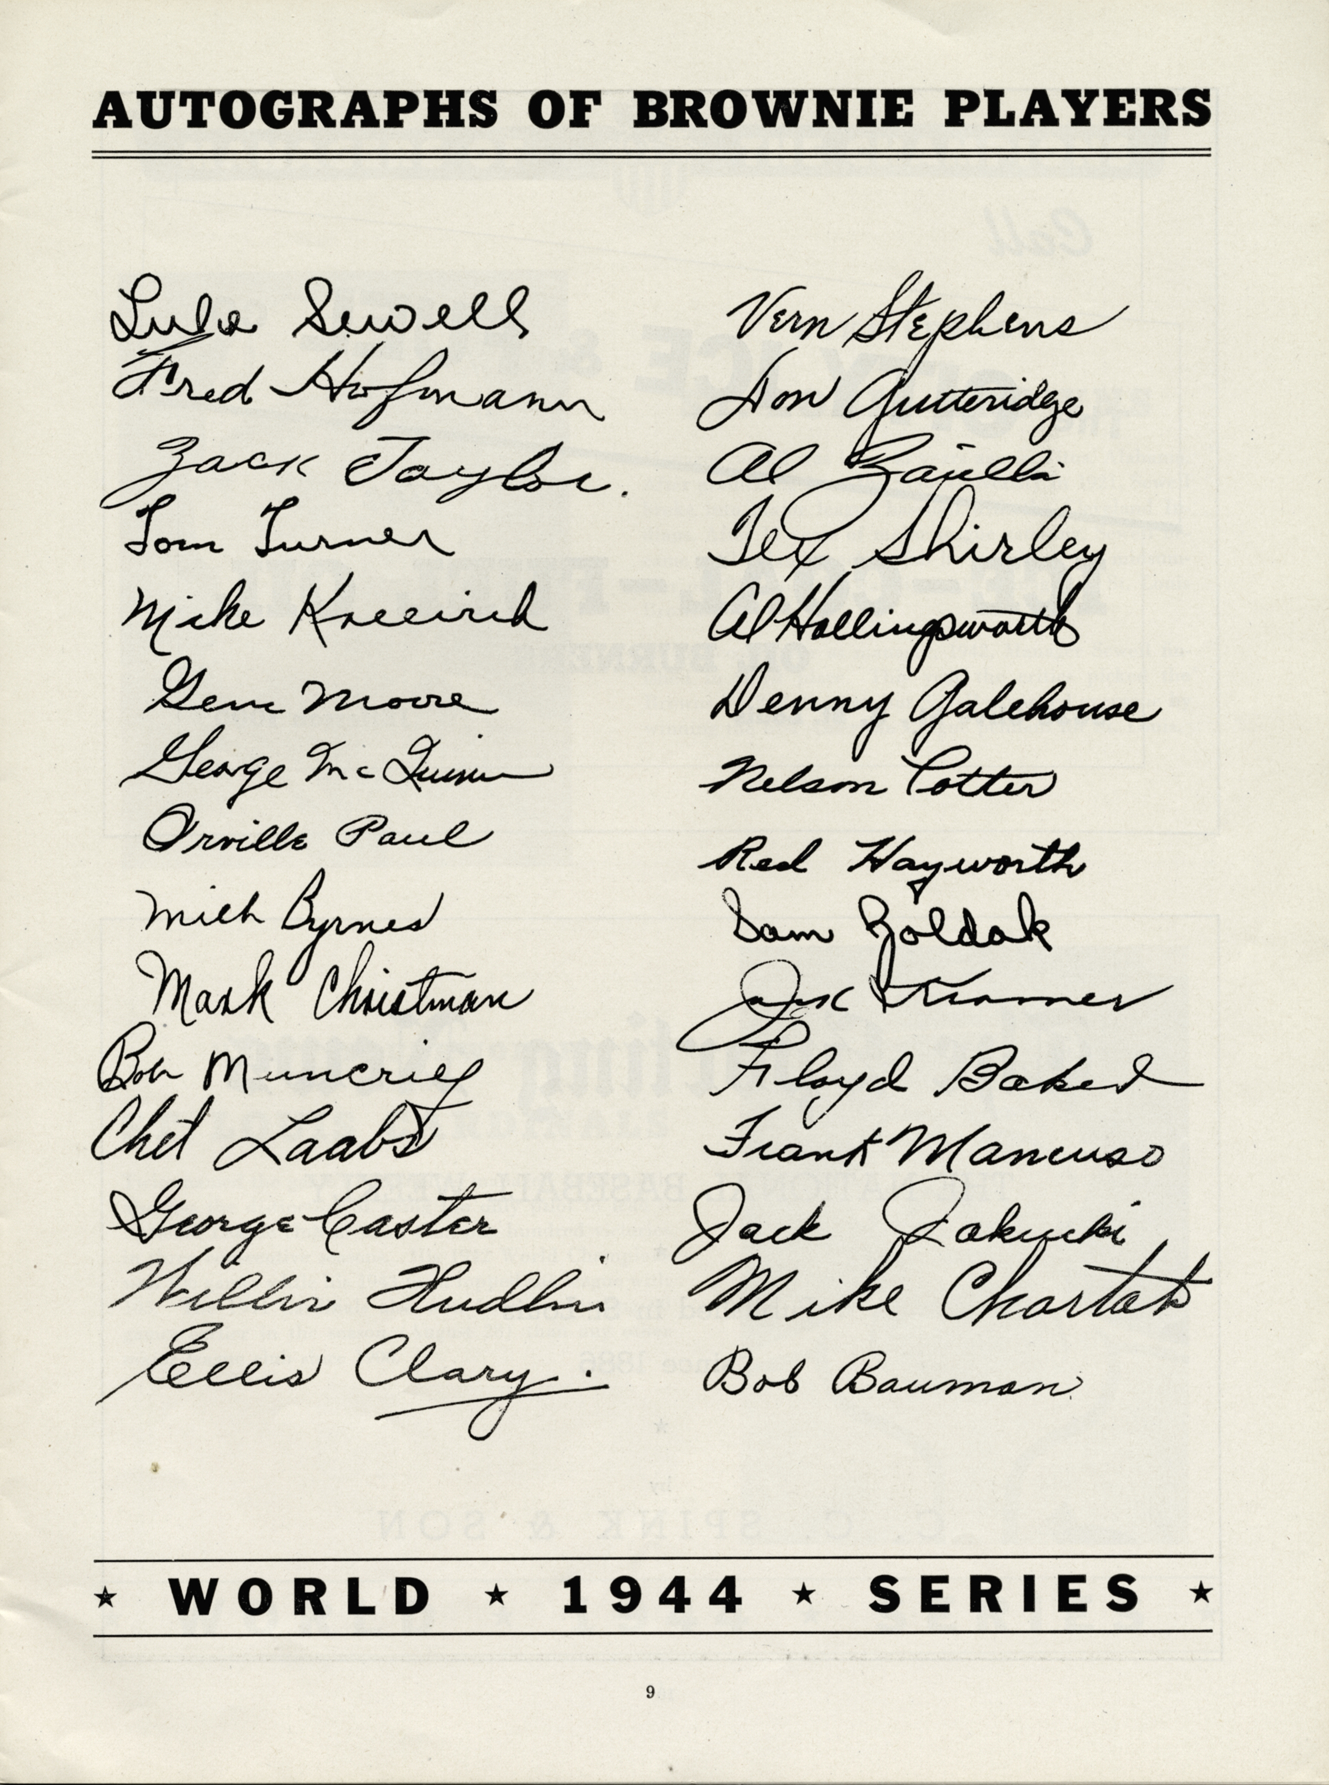 AUTOGRAPHS OF BROWNIE PLAYERS
Luke Sewell
Fred Hofmann
Zack Taylor.
Tom Turner
Mike Kreevich
Gene Moore
George McQuinn
Orville Paul
Milt Byrnes
Mark Christman
Bob Muncrief
Chet Laabs
George Caster
Willis Hudlin
Ellis Clary.
Vern Stephens
Don Gutteridge
Al Zarilla
Tex Shirley
Al Hollingsworth
Denny Galehouse
Nelson Potter
Red Hayworth
Sam Zoldak
Jack Kramer
Floyd Baker
Frank Mancuso
Jack Jakucki
Mike Chartak
Bob Bauman
★ WORLD ★ 1944 ★ SERIES ★
9